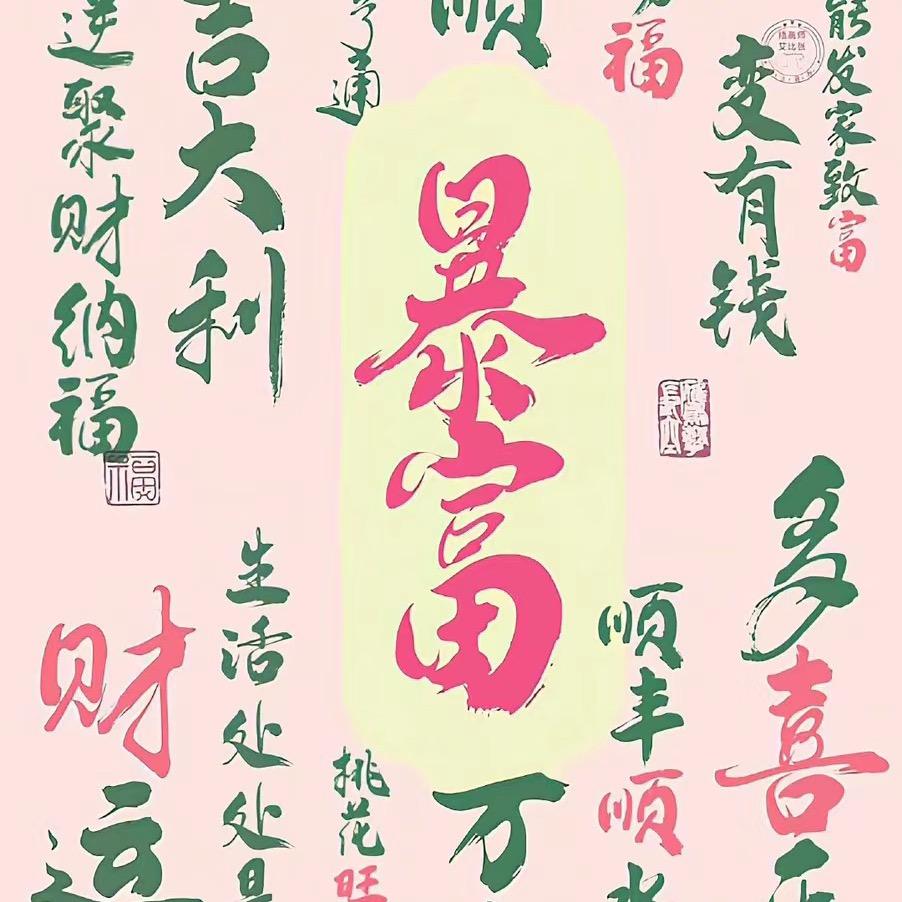 能发家致富
变有钱
多喜乐
福
顺丰顺水
顺
暴富
万
亨通
桃花旺
吉大利
生活处处是
逆聚财纳福
福
财运